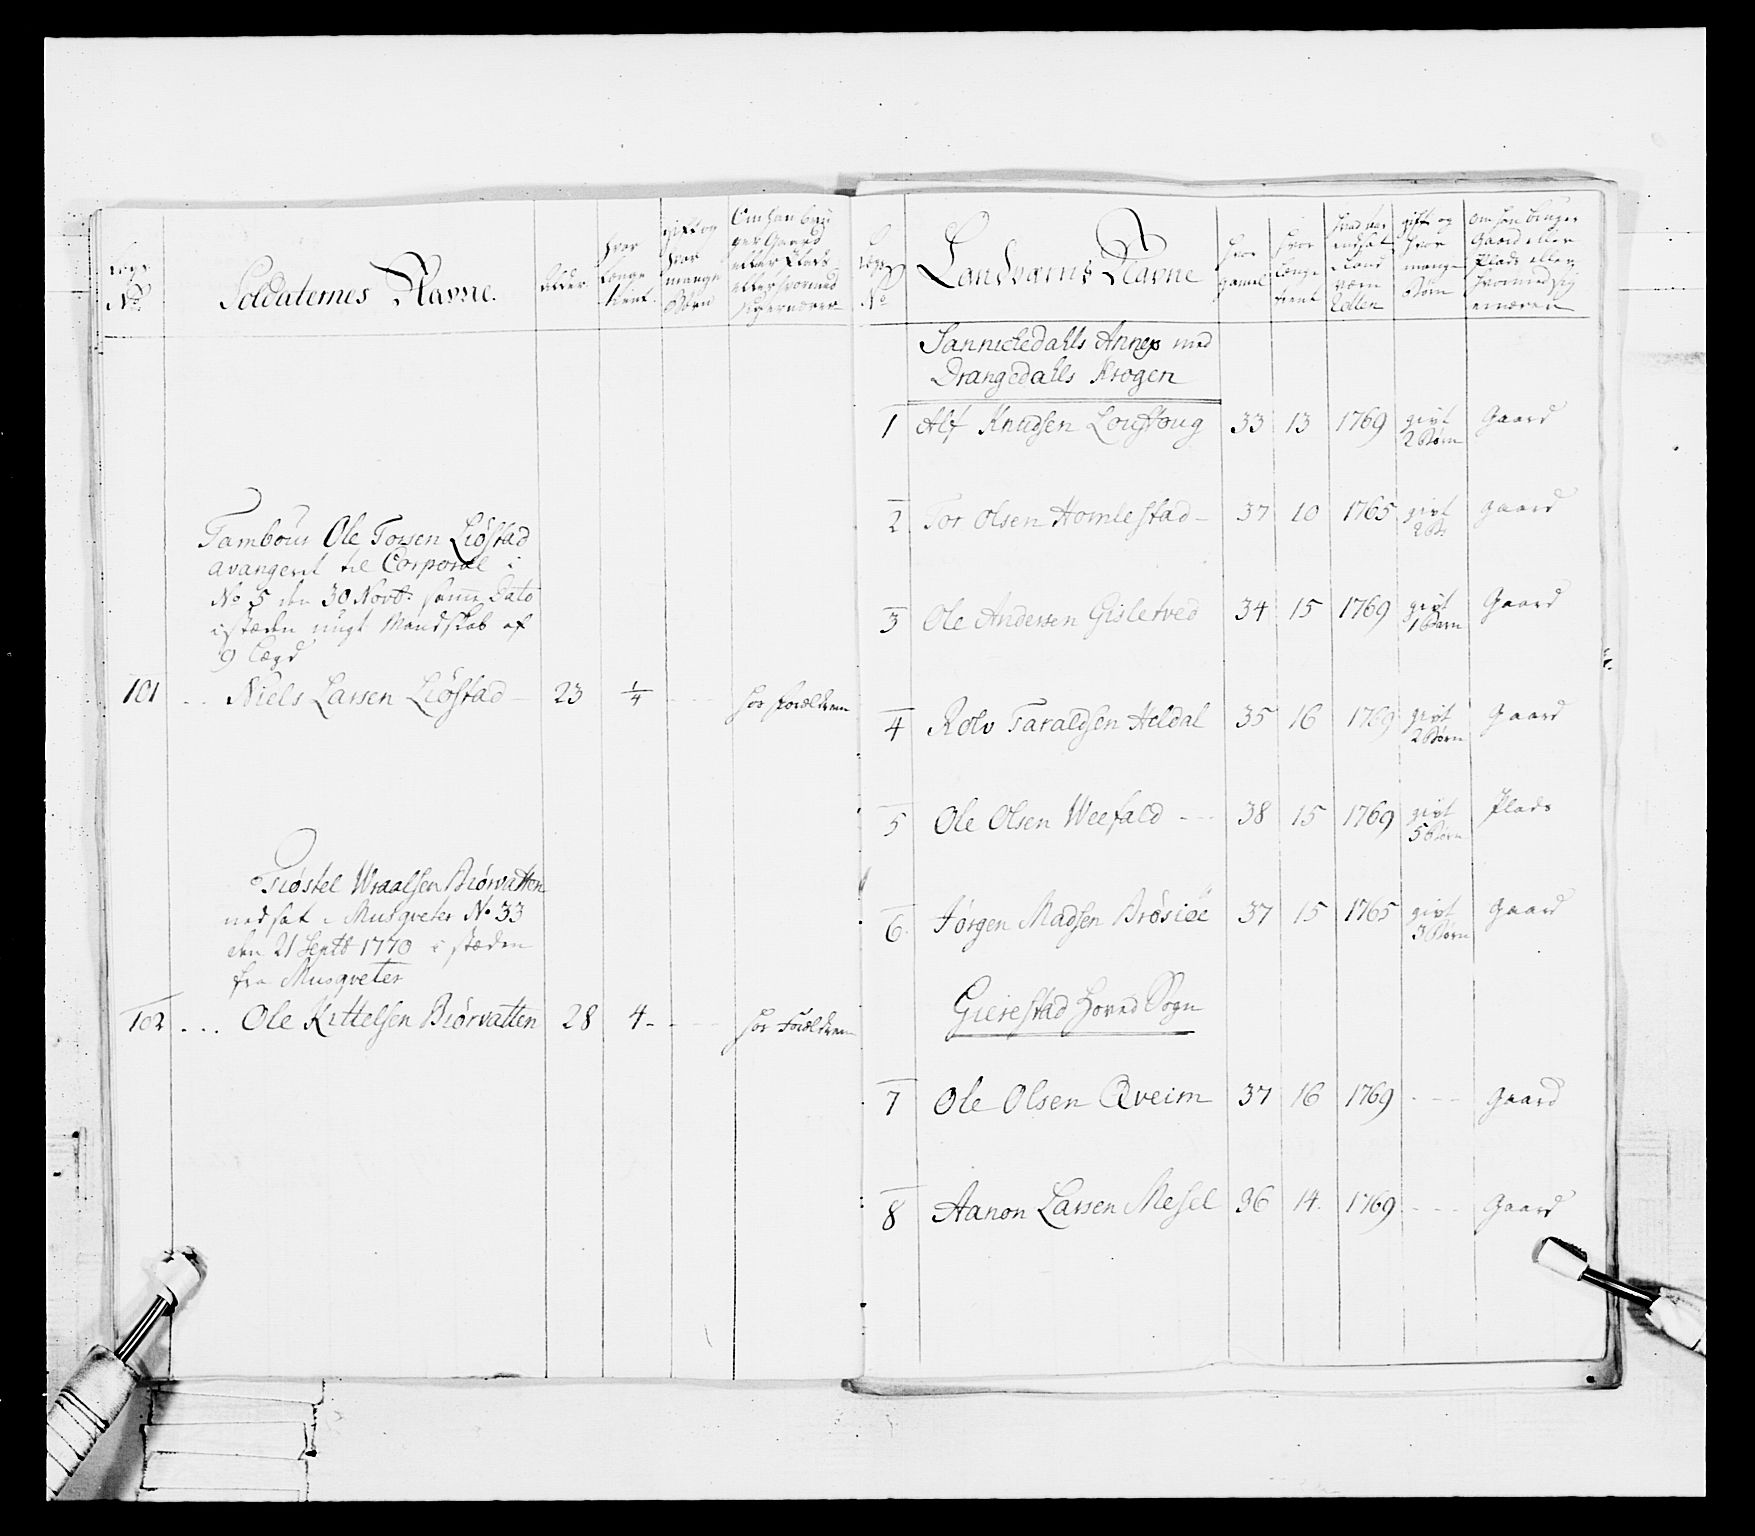 No
Soldaternes Navne.
Alder
hvor
længe
tient.
gift og
hvor
mange
Børn
Om han bru
ger Gaard
eller Plads
eller hvormed
Tambour Ole Torsen Liøstad
avangerit til Corporal i
No 5 den 30 Novb: samme Dato
i stæden nygt Mandskab af
9 Lægd
101 .. Niels Larsen Liøstad - 23 1/4 - - - hos Forældrene
Tiøstel Wraalsen Biørvatten
nedsat i Musqveter No 33
den 21 Septb 1770 i stæden
fra Musqveter
102 ... Ole Kittelsen Biørvatten 28 4 - - - - hos Forældrene
No
Landværns Navne
hvor
gammel
hvor
længe
tient
hvad aar
indsat
i Land
værn
gift og
hvor
mange
Børn
om han bruger
Gaard eller
Plads eller
hvormed sig
Sannickedahls Annex med
Drangedahls Krogen
1 Alf Knudsen Loustoug 33 13 1769 givt 2 Børn Gaard
2 Tor Olsen Homlestad - 37 10 1765 givt 2 B. Gaard
3 Ole Andersen Gisletved 34 15 1769 givt 1 Barn Gaard
4 Rolv Taraldsen Heldal 35 16 1769 givt 2 Børn Gaard
5 Ole Olsen Weefald - - - 38 15 1769 givt 5 Børn Plads
6. Jørgen Madsen Brøsiøe 37 15 1765 givt 3 Børn Gaard
Gierestad Hoved Sogn
7 Ole Olsen Qveim 37 16 1769 - - - Gaard
8 Aanon Larsen Mesel 36 14. 1769 - - - Gaard